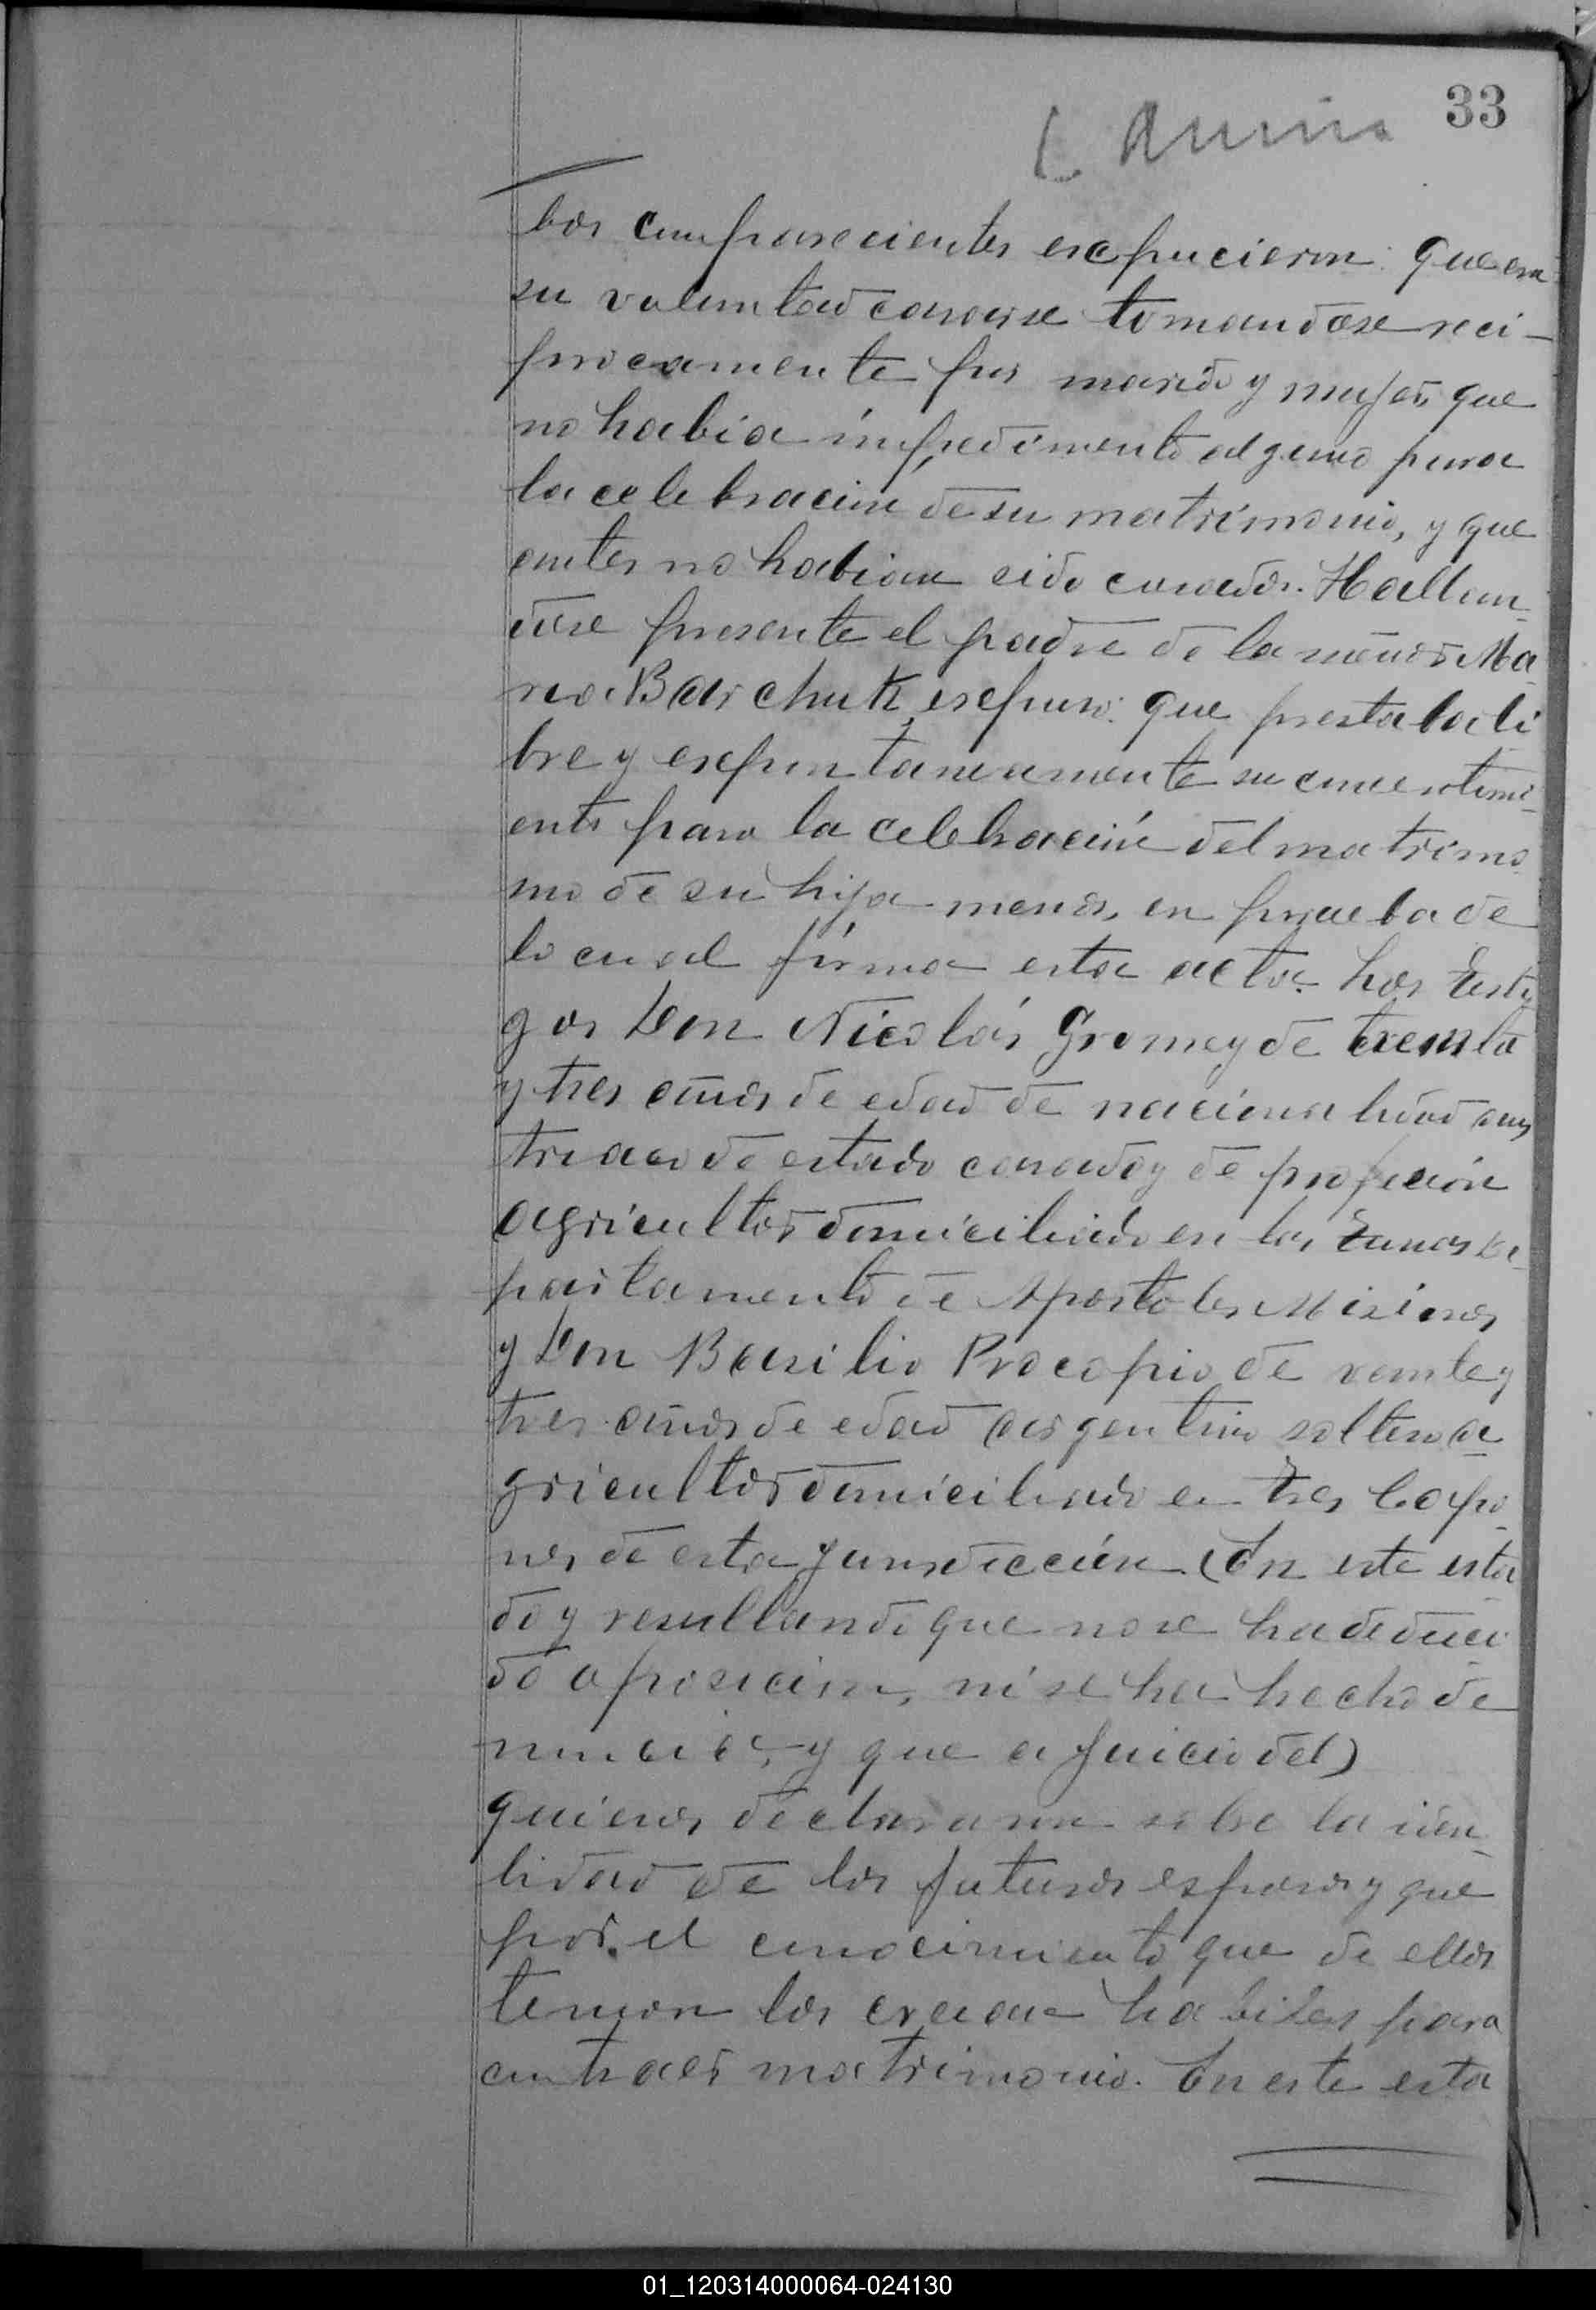 33
bos comparecientes expucieron: que era
su voluntad casarse tomandose reci-
procamente por marido y mujer, que
no habia impedimento alguno para
la celebración de su matrimonio, y que
antes no habian sido casados. Hallan-
dose presente el padre de la menor Ma
ria Barchuk, expuso: que prestaba li
bre y expontaneamente su consentimi-
ento para la celebración del matrimo
nio de su hija menor, en prueba de
lo cual firma esta acta. Los testi
gos Don Nicolás Gromey de treinta
y tres años de edad de nacionalidad aus
triaco de estado casado y de profeción
agricultor domiciliado en las Tunas De-
partamento de Apostoles Misiones
y Don Basilio Procopio de veinte y
tres años de edad argentino soltero a
gricultor domiciliado en Tres Capo
nes de esta Jurisdicción (En este esta
do y resultando que no se ha deduci
do oposicion, ni se ha hecho de
nuncia, y que a juicio del)
quienes declararon sobre la iden-
tidad de los futuros esposos y que
por el conocimiento que de ellos
tenian los creian habiles para
contraer matrimonio. En este esta
01_120314000064-024130